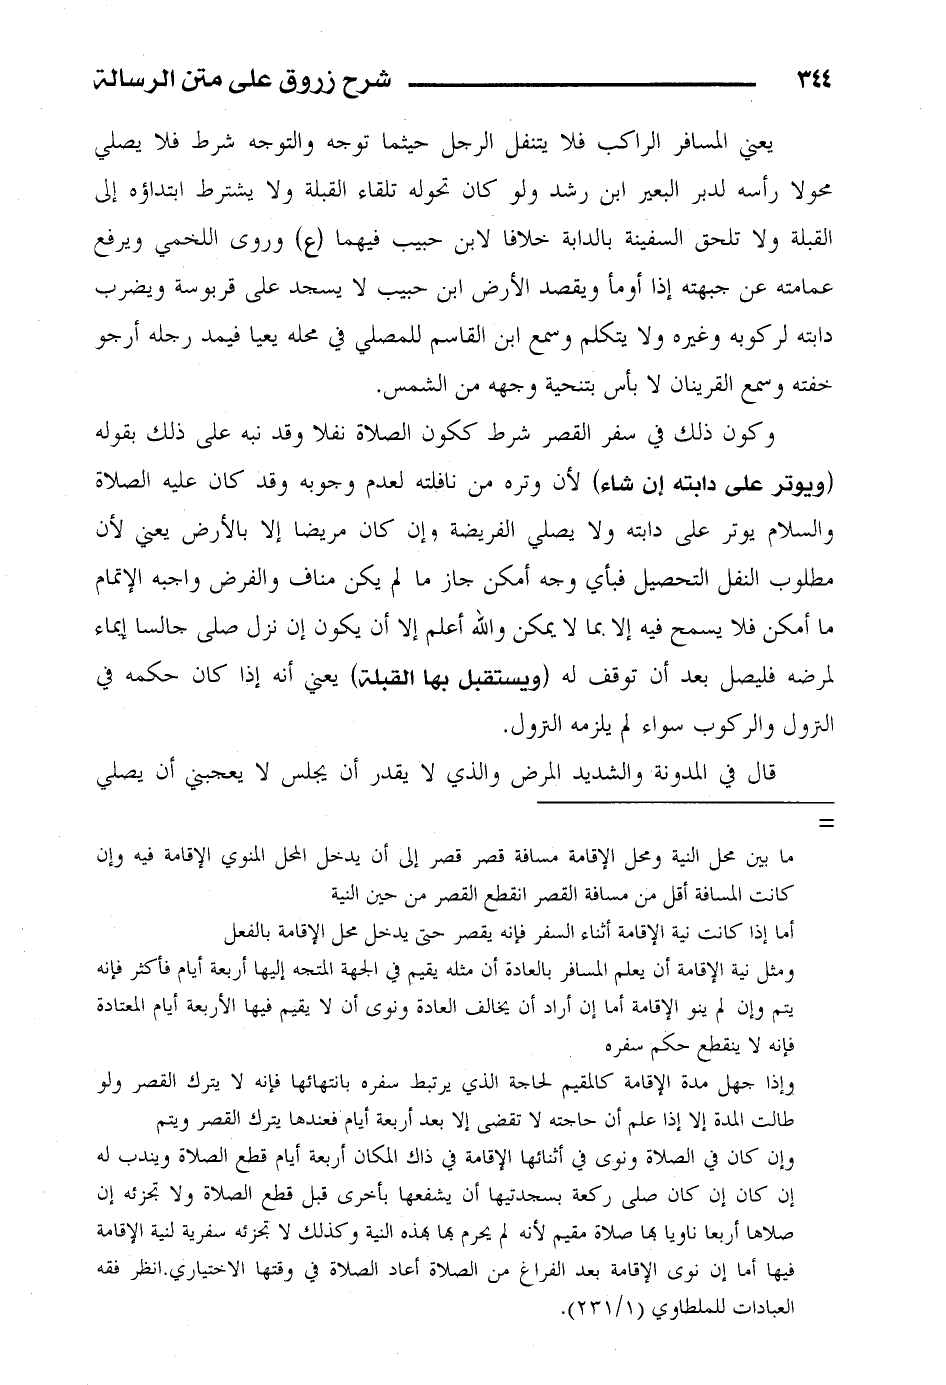 ٣٤٤ شرح زروق على متن الرسالة
يعني المسافر الراكب فلا يتنفل الرجل حيثما توجه والتوجه شرط فلا يصلي
محولا رأسه لدبر البعير ابن رشد ولو كان تحوله تلقاء القبلة ولا يشترط ابتداؤه إلى
القبلة ولا تلحق السفينة بالدابة خلافا لابن حبيب فيهما (ع) وروى اللخمي ويرفع
عمامته عن جبهته إذا أومأ ويقصد الأرض ابن حبيب لا يسجد على قربوسة ويضرب
دابته لركوبه وغيره ولا يتكلم وسمع ابن القاسم للمصلي في محله يعيا فيمد رجله أرجو
خفته وسمع القرينان لا بأس بتنحية وجهه من الشمس.
وكون ذلك في سفر القصر شرط ككون الصلاة نفلا وقد نبه على ذلك بقوله
(ويوتر على دابته إن شاء) لأن وتره من نافلته لعدم وجوبه وقد كان عليه الصلاة
والسلام يوتر على دابته ولا يصلي الفريضة وإن كان مريضا إلا بالأرض يعني لأن
مطلوب النفل التحصيل فبأي وجه أمكن جاز ما لم يكن مناف والفرض واجبه الإتمام
ما أمكن فلا يسمح فيه إلا بما لا يمكن والله أعلم إلا أن يكون إن نزل صلى جالسا إيماء
لمرضه فليصل بعد أن توقف له (ويستقبل بها القبلة) يعني أنه إذا كان حكمه في
النزول والركوب سواء لم يلزمه النزول.
قال في المدونة والشديد المرض والذي لا يقدر أن يجلس لا يعجبني أن يصلي
=
ما بين محل النية ومحل الإقامة مسافة قصر قصر إلى أن يدخل المحل المنوي الإقامة فيه وإن
كانت المسافة أقل من مسافة القصر انقطع القصر من حين النية
أما إذا كانت نية الإقامة أثناء السفر فإنه يقصر حتى يدخل محل الإقامة بالفعل
ومثل نية الإقامة أن يعلم المسافر بالعادة أن مثله يقيم في الجهة المتجه إليها أربعة أيام فأكثر فإنه
يتم وإن لم ينو الإقامة أما إن أراد أن يخالف العادة ونوى أن لا يقيم فيها الأربعة أيام المعتادة
فإنه لا ينقطع حكم سفره
وإذا جهل مدة الإقامة كالمقيم لحاجة الذي يرتبط سفره بانتهائها فإنه لا يترك القصر ولو
طالت المدة إلا إذا علم أن حاجته لا تقضى إلا بعد أربعة أيام فعندها يترك القصر ويتم
وإن كان في الصلاة ونوى في أثنائها الإقامة في ذاك المكان أربعة أيام قطع الصلاة ويندب له
إن كان إن كان صلى ركعة بسجدتيها أن يشفعها بأخرى قبل قطع الصلاة ولا تجزئه إن
صلاها أربعا ناويا بها صلاة مقيم لأنه لم يحرم بها بهذه النية وكذلك لا تجزئه سفرية لنية الإقامة
فيها أما إن نوى الإقامة بعد الفراغ من الصلاة أعاد الصلاة في وقتها الاختياري.انظر فقه
العبادات للملطاوي (٢٣١/١).